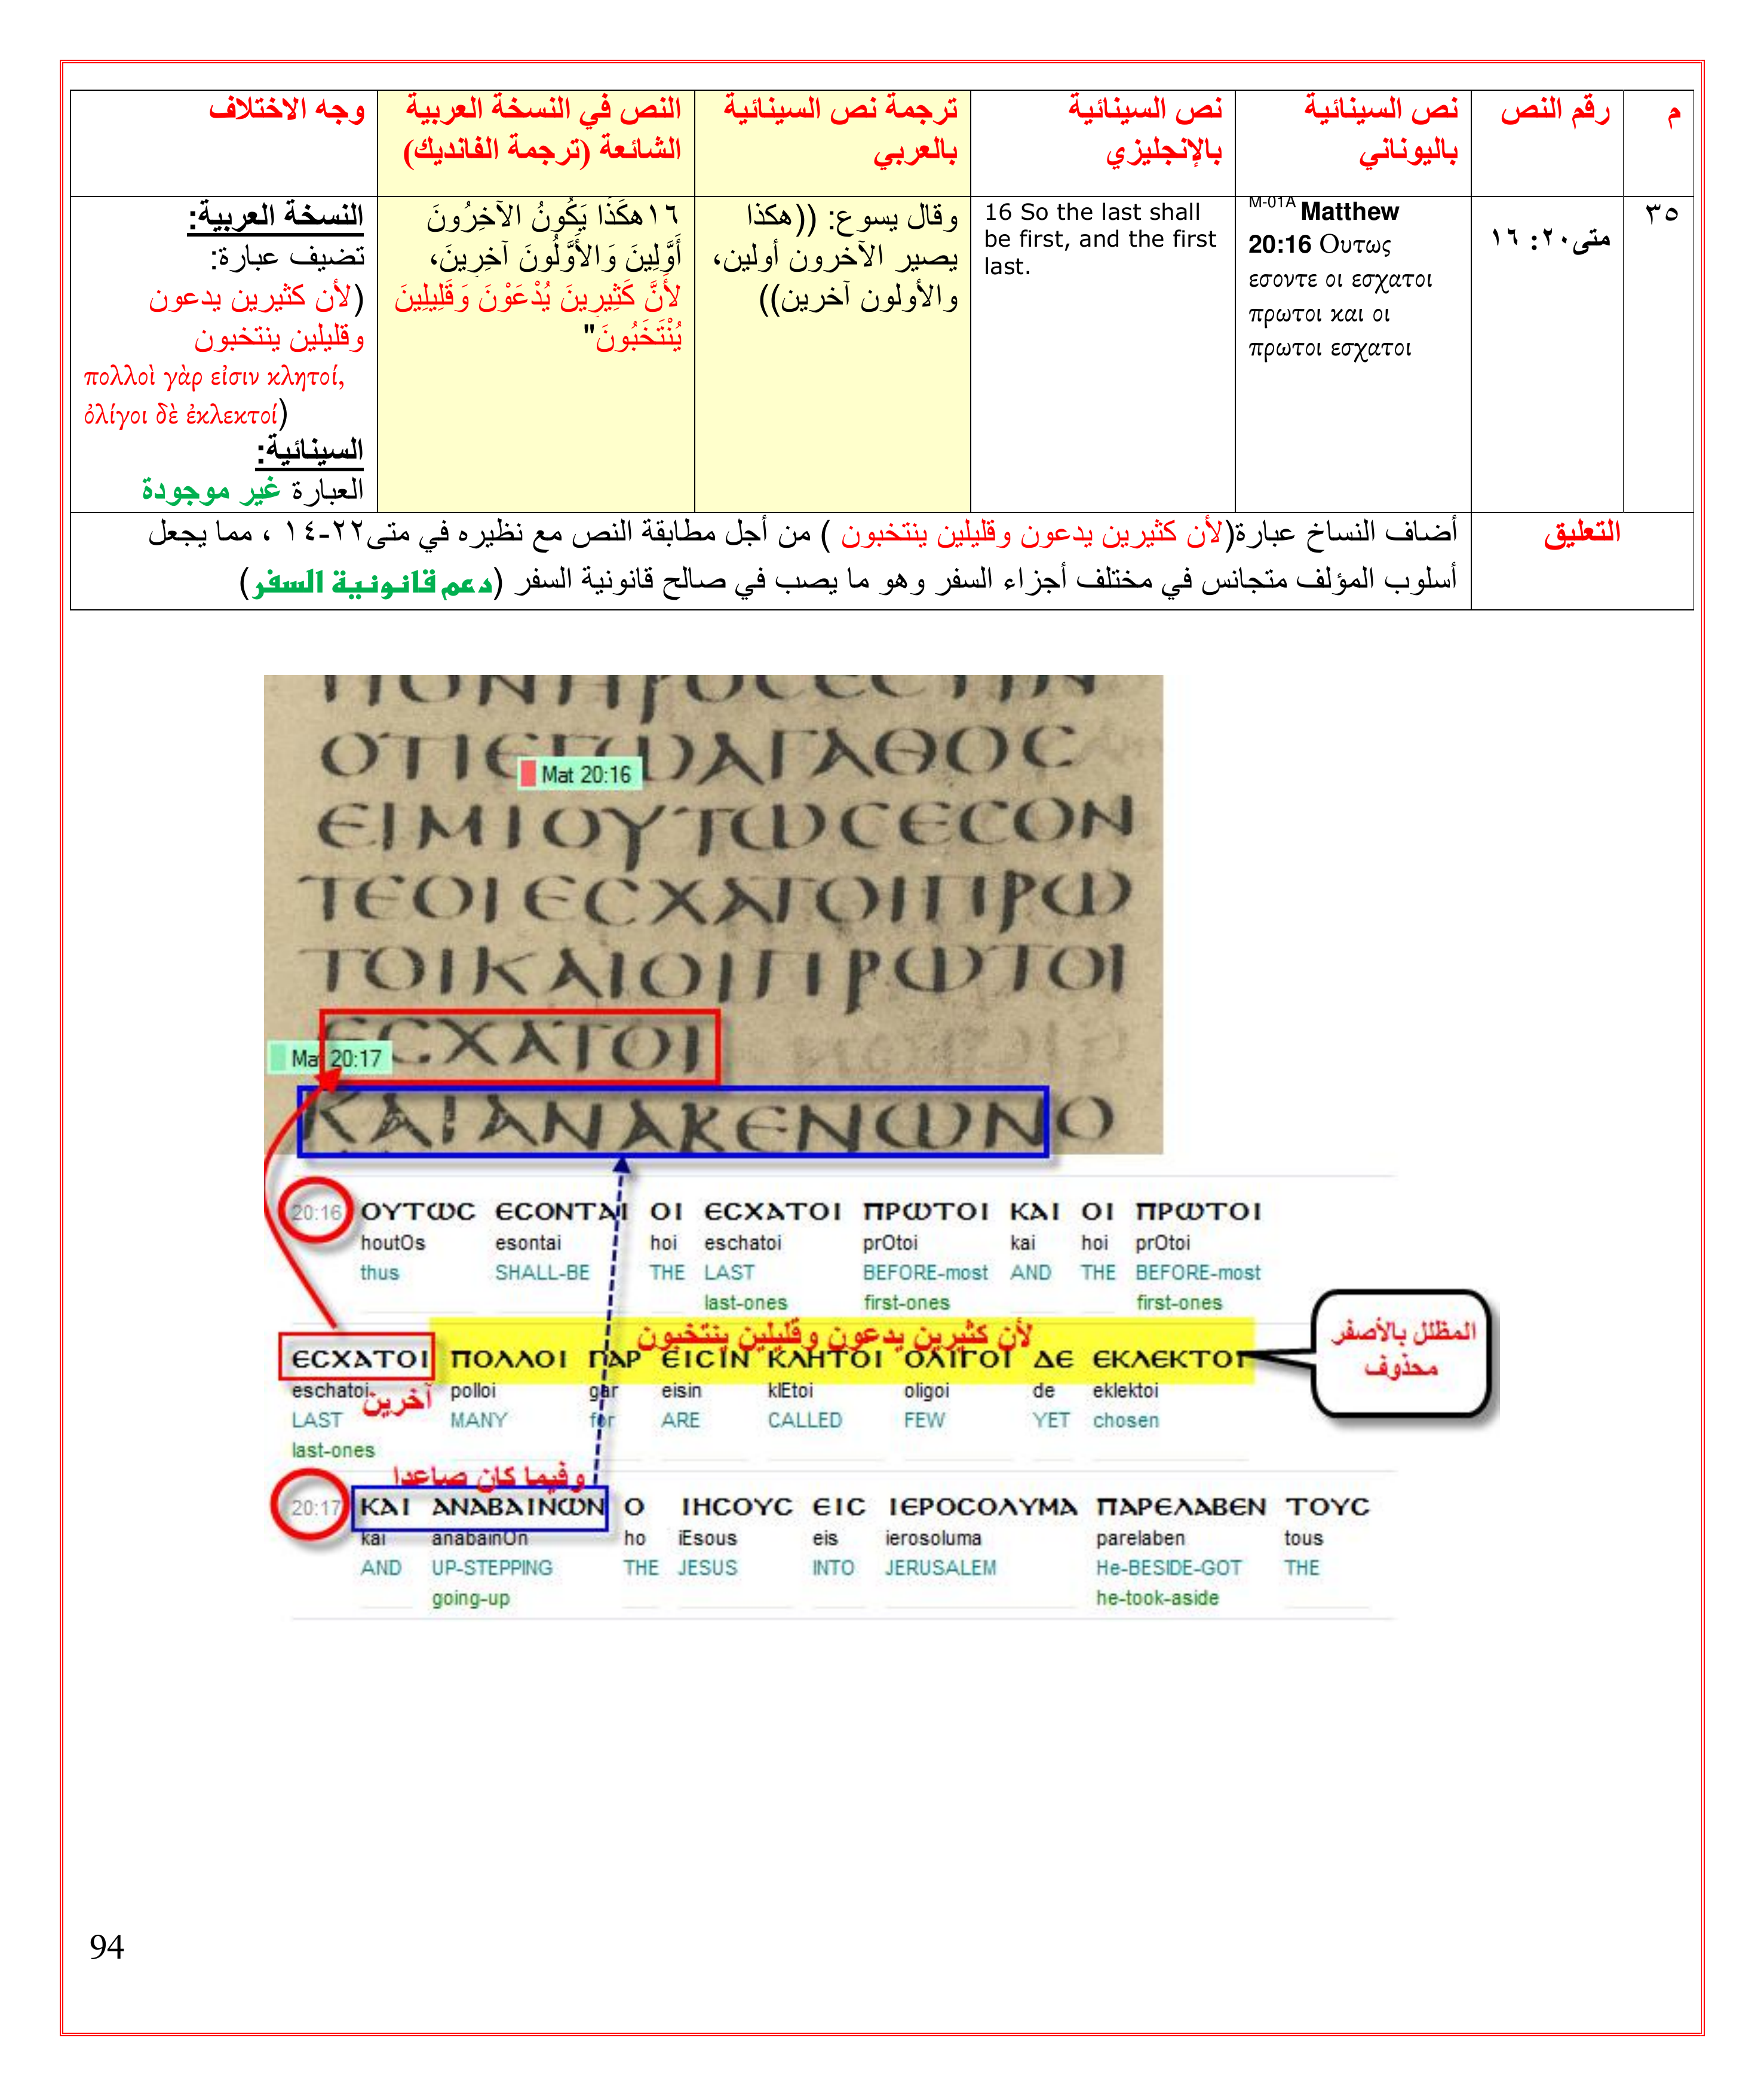 م
رقم النص
نص السينائية
باليوناني
نص السينائية
بالإنجليزي
ترجمة نص السينائية
بالعربي
النص في النسخة العربية
الشائعة (ترجمة الفانديك)
وجه الاختلاف
٣٥
متى٢٠: ١٦
M-01A Matthew
20:16 Ουτως
εσοντε οι εσχατοι
πρωτοι και οι
πρωτοι εσχατοι
16 So the last shall
be first, and the first
last.
وقال يسوع: ((هكذا
يصير الآخرون أولين،
والأولون آخرين))
١٦هكَذَا يَكُونُ الآخِرُونَ
أَوَّلِينَ وَالأَوَّلُونَ آخِرِينَ،
لأَنَّ كَثِيرِينَ يُدْعَوْنَ وَقَلِيلِينَ
يُنْتَخَبُونَ"
النسخة العربية:
تضيف عبارة:
(لأن كثيرين يدعون
وقليلين ينتخبون
πολλοὶ γὰρ εἰσιν κλητοί,
ὀλίγοι δὲ ἐκλεκτοί)
السينائية:
العبارة غير موجودة
التعليق
أضاف النساخ عبارة(لأن كثيرين يدعون وقليلين ينتخبون ) من أجل مطابقة النص مع نظيره في متى٢٢-١٤ ، مما يجعل
أسلوب المؤلف متجانس في مختلف أجزاء السفر وهو ما يصب في صالح قانونية السفر (دعم قانونية السفر)
ΠΟΝΗΡΟϹЄϹΤΙΝ
ΟΤΙЄΓѠΑΓΑΘΟϹ
Mat 20:16
ЄΙΜΙΟΥΤѠϹЄϹΟΝ
ΤЄΟΙЄϹΧΑΤΟΙΠΡѠ
ΤΟΙΚΑΙΟΙΠΡѠΤΟΙ
ЄϹΧΑΤΟΙ
Mat 20:17
ΚΑΙΑΝΑΚЄΝѠΝΟ
20:16 ΟΥΤѠϹ ЄϹΟΝΤΑΙ ΟΙ ЄϹΧΑΤΟΙ ΠΡѠΤΟΙ ΚΑΙ ΟΙ ΠΡѠΤΟΙ
houtOs esontai hoi eschatoi prOtoi kai hoi prOtoi
thus SHALL-BE THE LAST BEFORE-most AND THE BEFORE-most
last-ones first-ones first-ones
لأن كثيرين يدعون وقليلين ينتخبون
المظلل بالأصفر
محذوف
ЄϹΧΑΤΟΙ ΠΟΛΛΟΙ ΓΑΡ ЄΙϹΙΝ ΚΛΗΤΟΙ ΟΛΙΓΟΙ ΔЄ ЄΚΛЄΚΤΟΙ
eschatoi polloi gar eisin klEtoi oligoi de eklektoi
آخرين
LAST MANY for ARE CALLED FEW YET chosen
last-ones
وفيما كان صاعدا
20:17 ΚΑΙ ΑΝΑΒΑΙΝѠΝ Ο ΙΗϹΟΥϹ ЄΙϹ ΙЄΡΟϹΟΛΥΜΑ ΠΑΡЄΛΑΒЄΝ ΤΟΥϹ
kai anabainOn ho iEsous eis ierosoluma parelaben tous
AND UP-STEPPING THE JESUS INTO JERUSALEM He-BESIDE-GOT THE
going-up he-took-aside
94